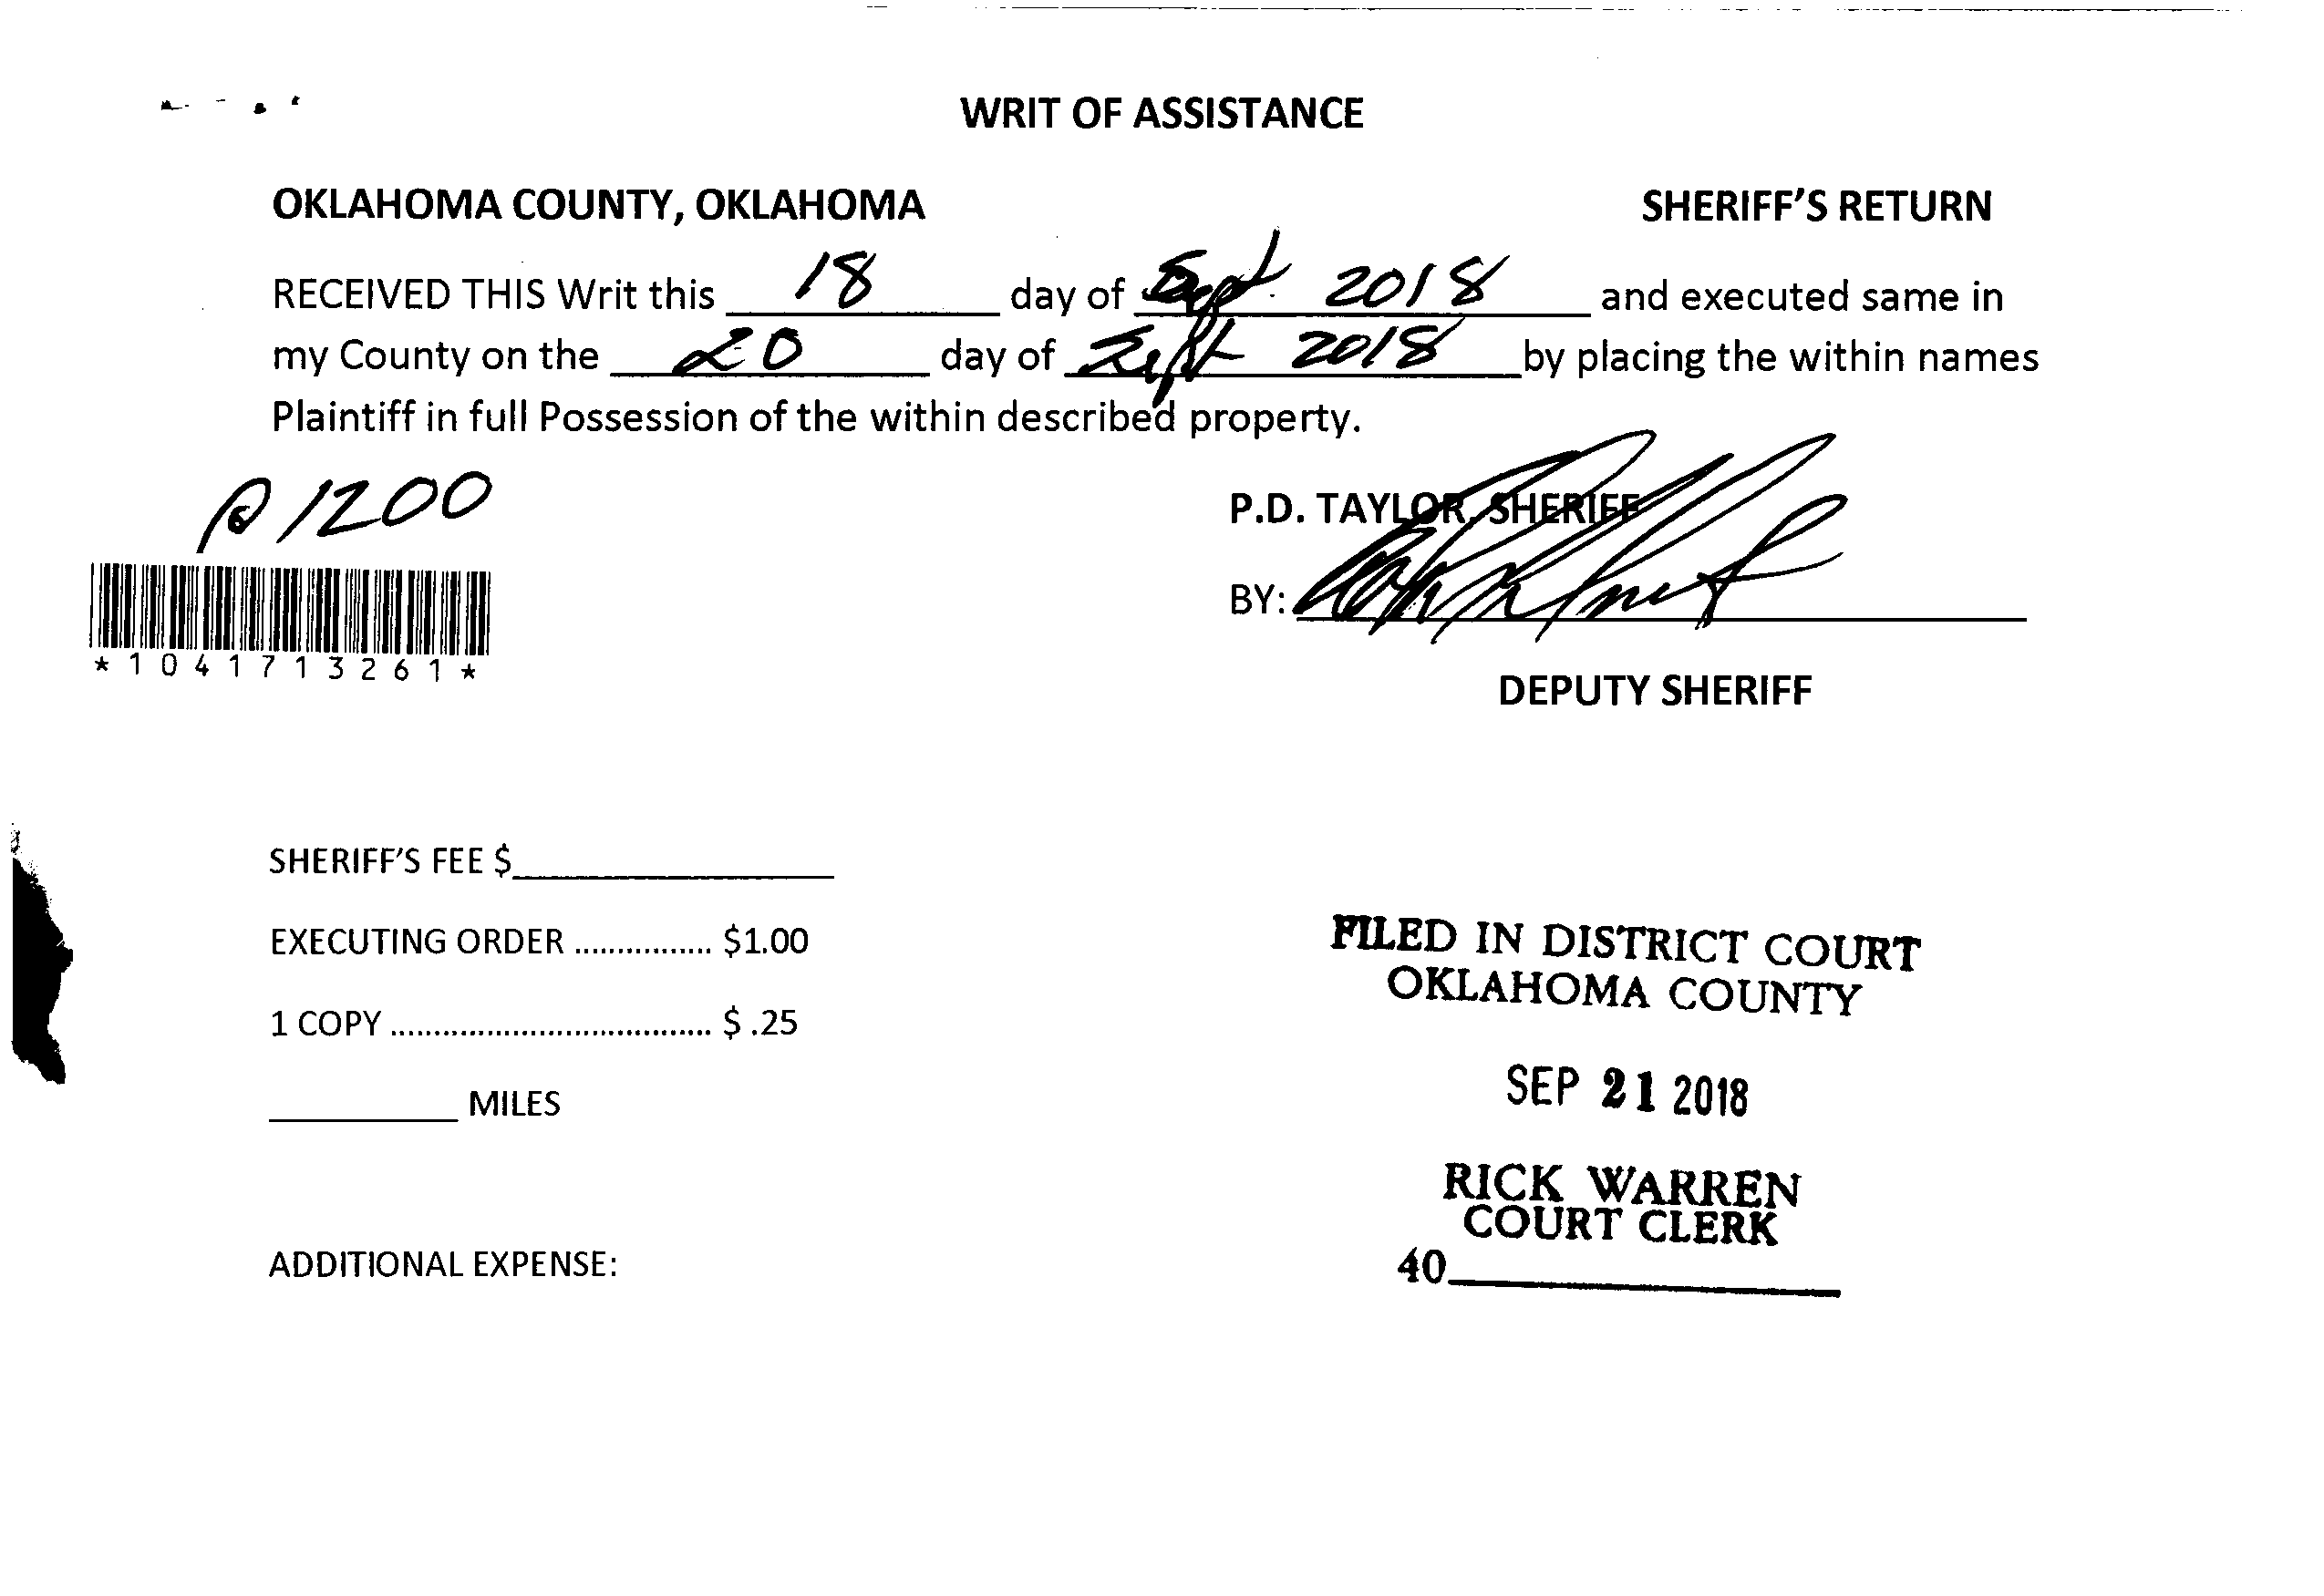 WRIT OF ASSISTANCE
OKLAHOMA COUNTY, OKLAHOMA SHERIFF'S RETURN
RECEIVED THIS Writ this 18 day of Sept. 2018 and executed same in
my County on the 20 day of Sept 2018 by placing the within names
Plaintiff in full Possession of the within described property.
@ 1200
P.D. TAYLOR, SHERIFF
*1041713261*
BY:
DEPUTY SHERIFF
SHERIFF'S FEE $
EXECUTING ORDER ................ $1.00
1 COPY ..................................... $ .25
MILES
ADDITIONAL EXPENSE:
FILED IN DISTRICT COURT
OKLAHOMA COUNTY
SEP 21 2018
RICK WARREN
COURT CLERK
40